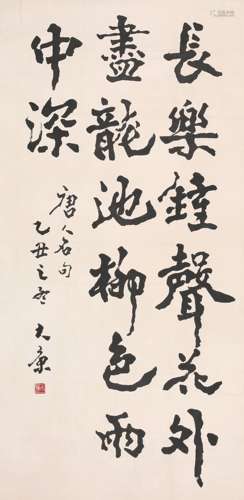 長樂鐘聲花外
盡龍池柳色雨
中深
唐人名句
乙丑之
大康